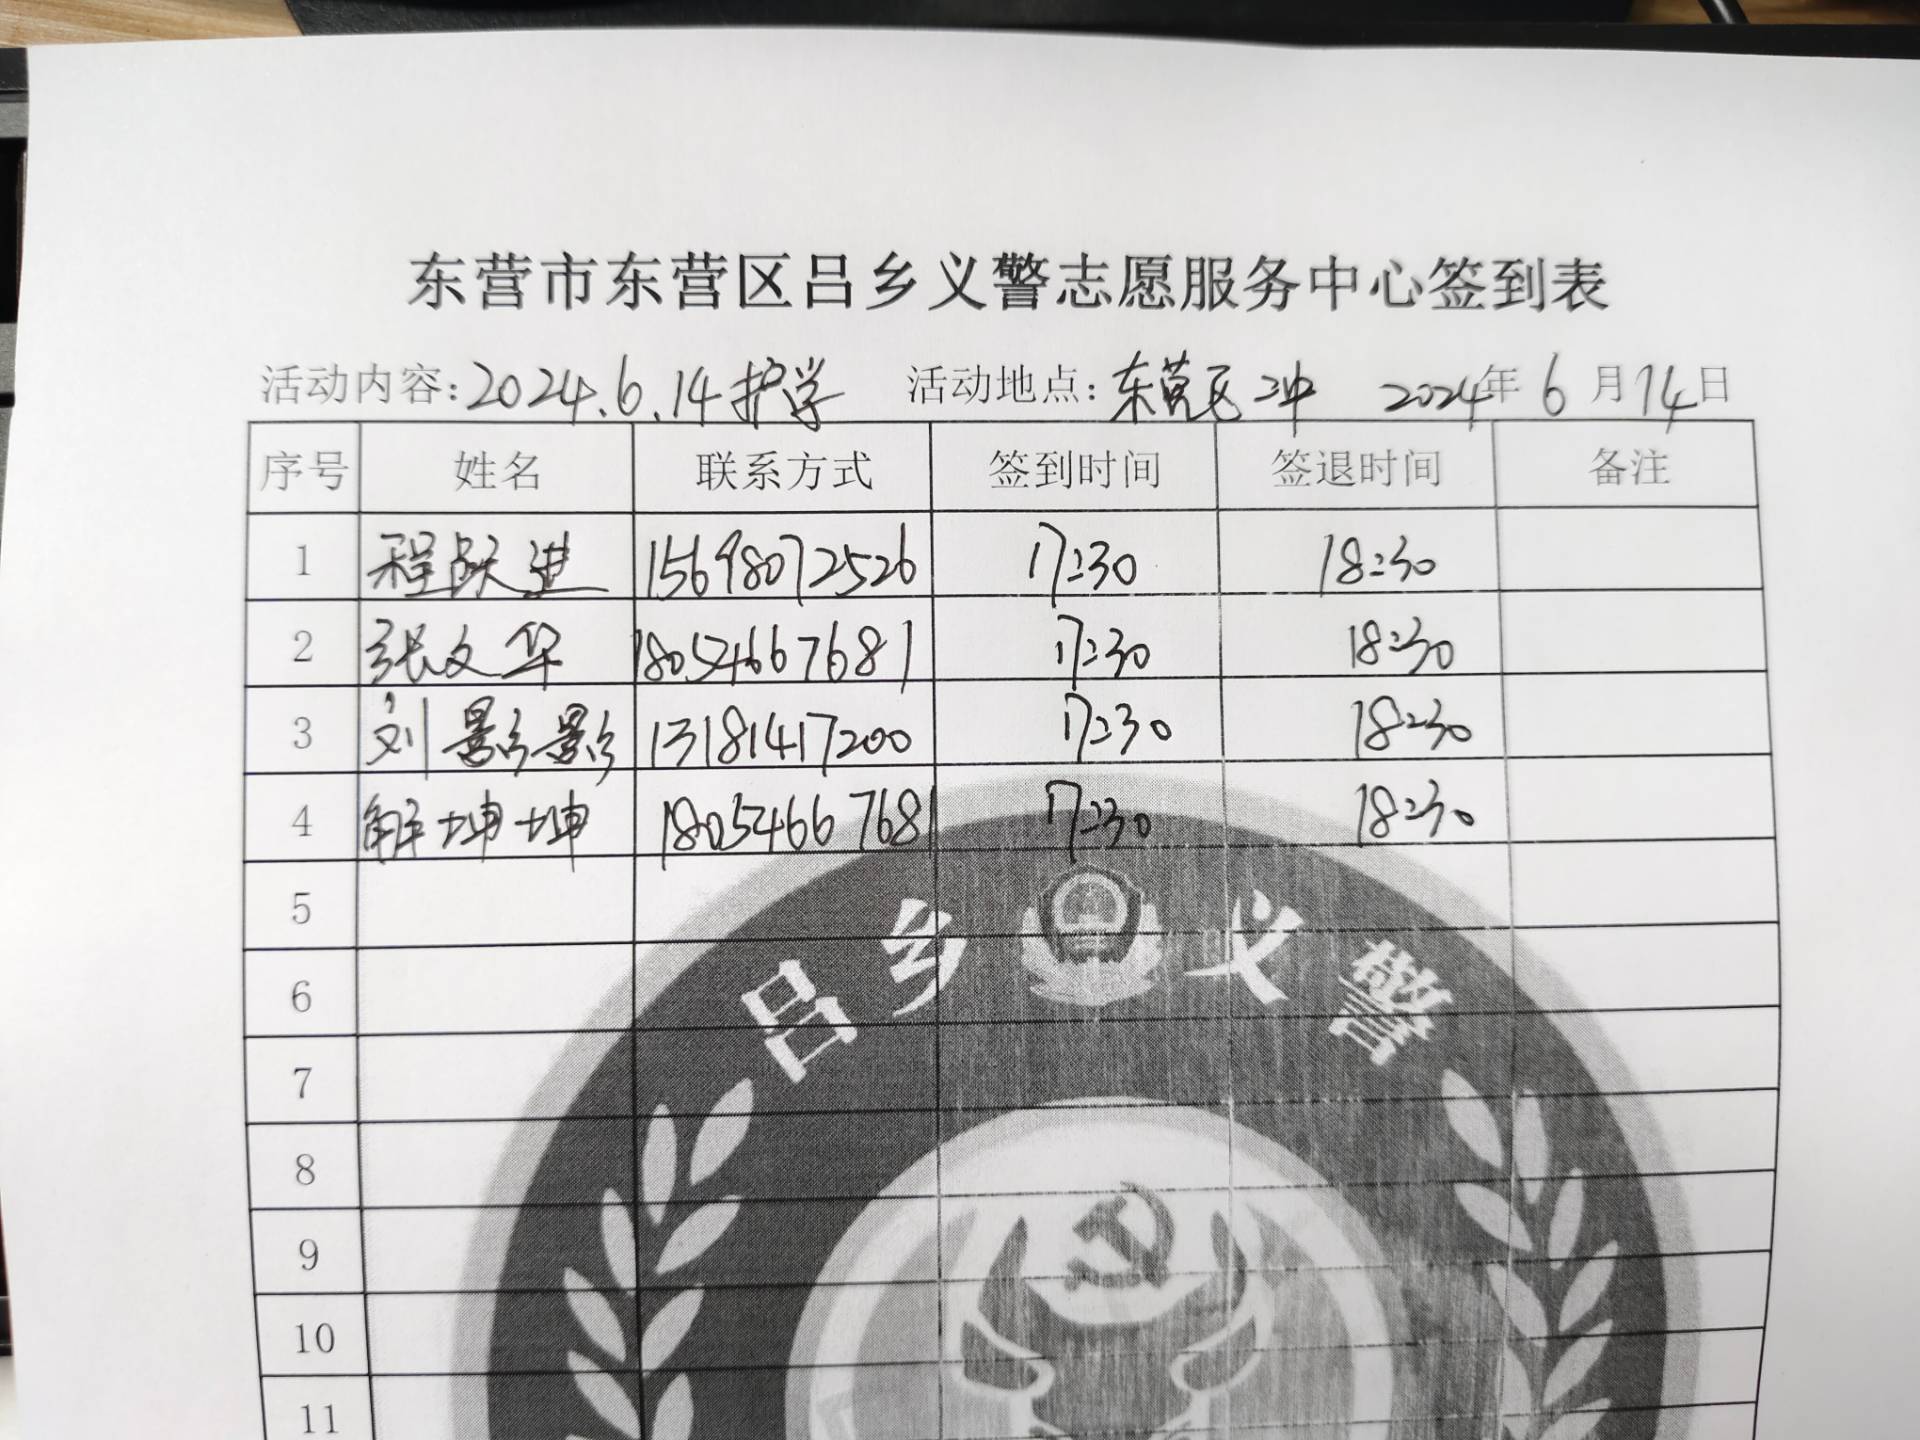 东营市东营区吕乡义警志愿服务中心签到表
活动内容：2024.6.14护学 活动地点：东营区二中 2024年6月14日
序号 姓名 联系方式 签到时间 签退时间 备注
1 程跃进 15698072526 17:30 18:30
2 张文华 18054667681 17:30 18:30
3 刘影影 13181417200 17:30 18:30
4 解坤坤 18054667681 17:30 18:30
5
6
7
8
9
10
11
吕乡义警